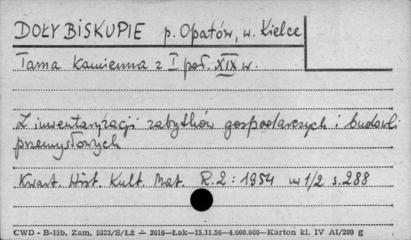 DOŁY BISKUPIE p. Opatów, w. Kielce
Tama kamienna z I poł. XIX w.
Z inwentaryzacji zabytków gospodarczych i budowli
przemysłowych
Kwart. Hist. Kult. Mat. R. 2 : 1954 nr 1/2 s. 288
CWD - B-15b. Zam. 5823/S/Łż — 3016—Łak—15.11.56—4.000.000—Karton kl. IV A1/200 g